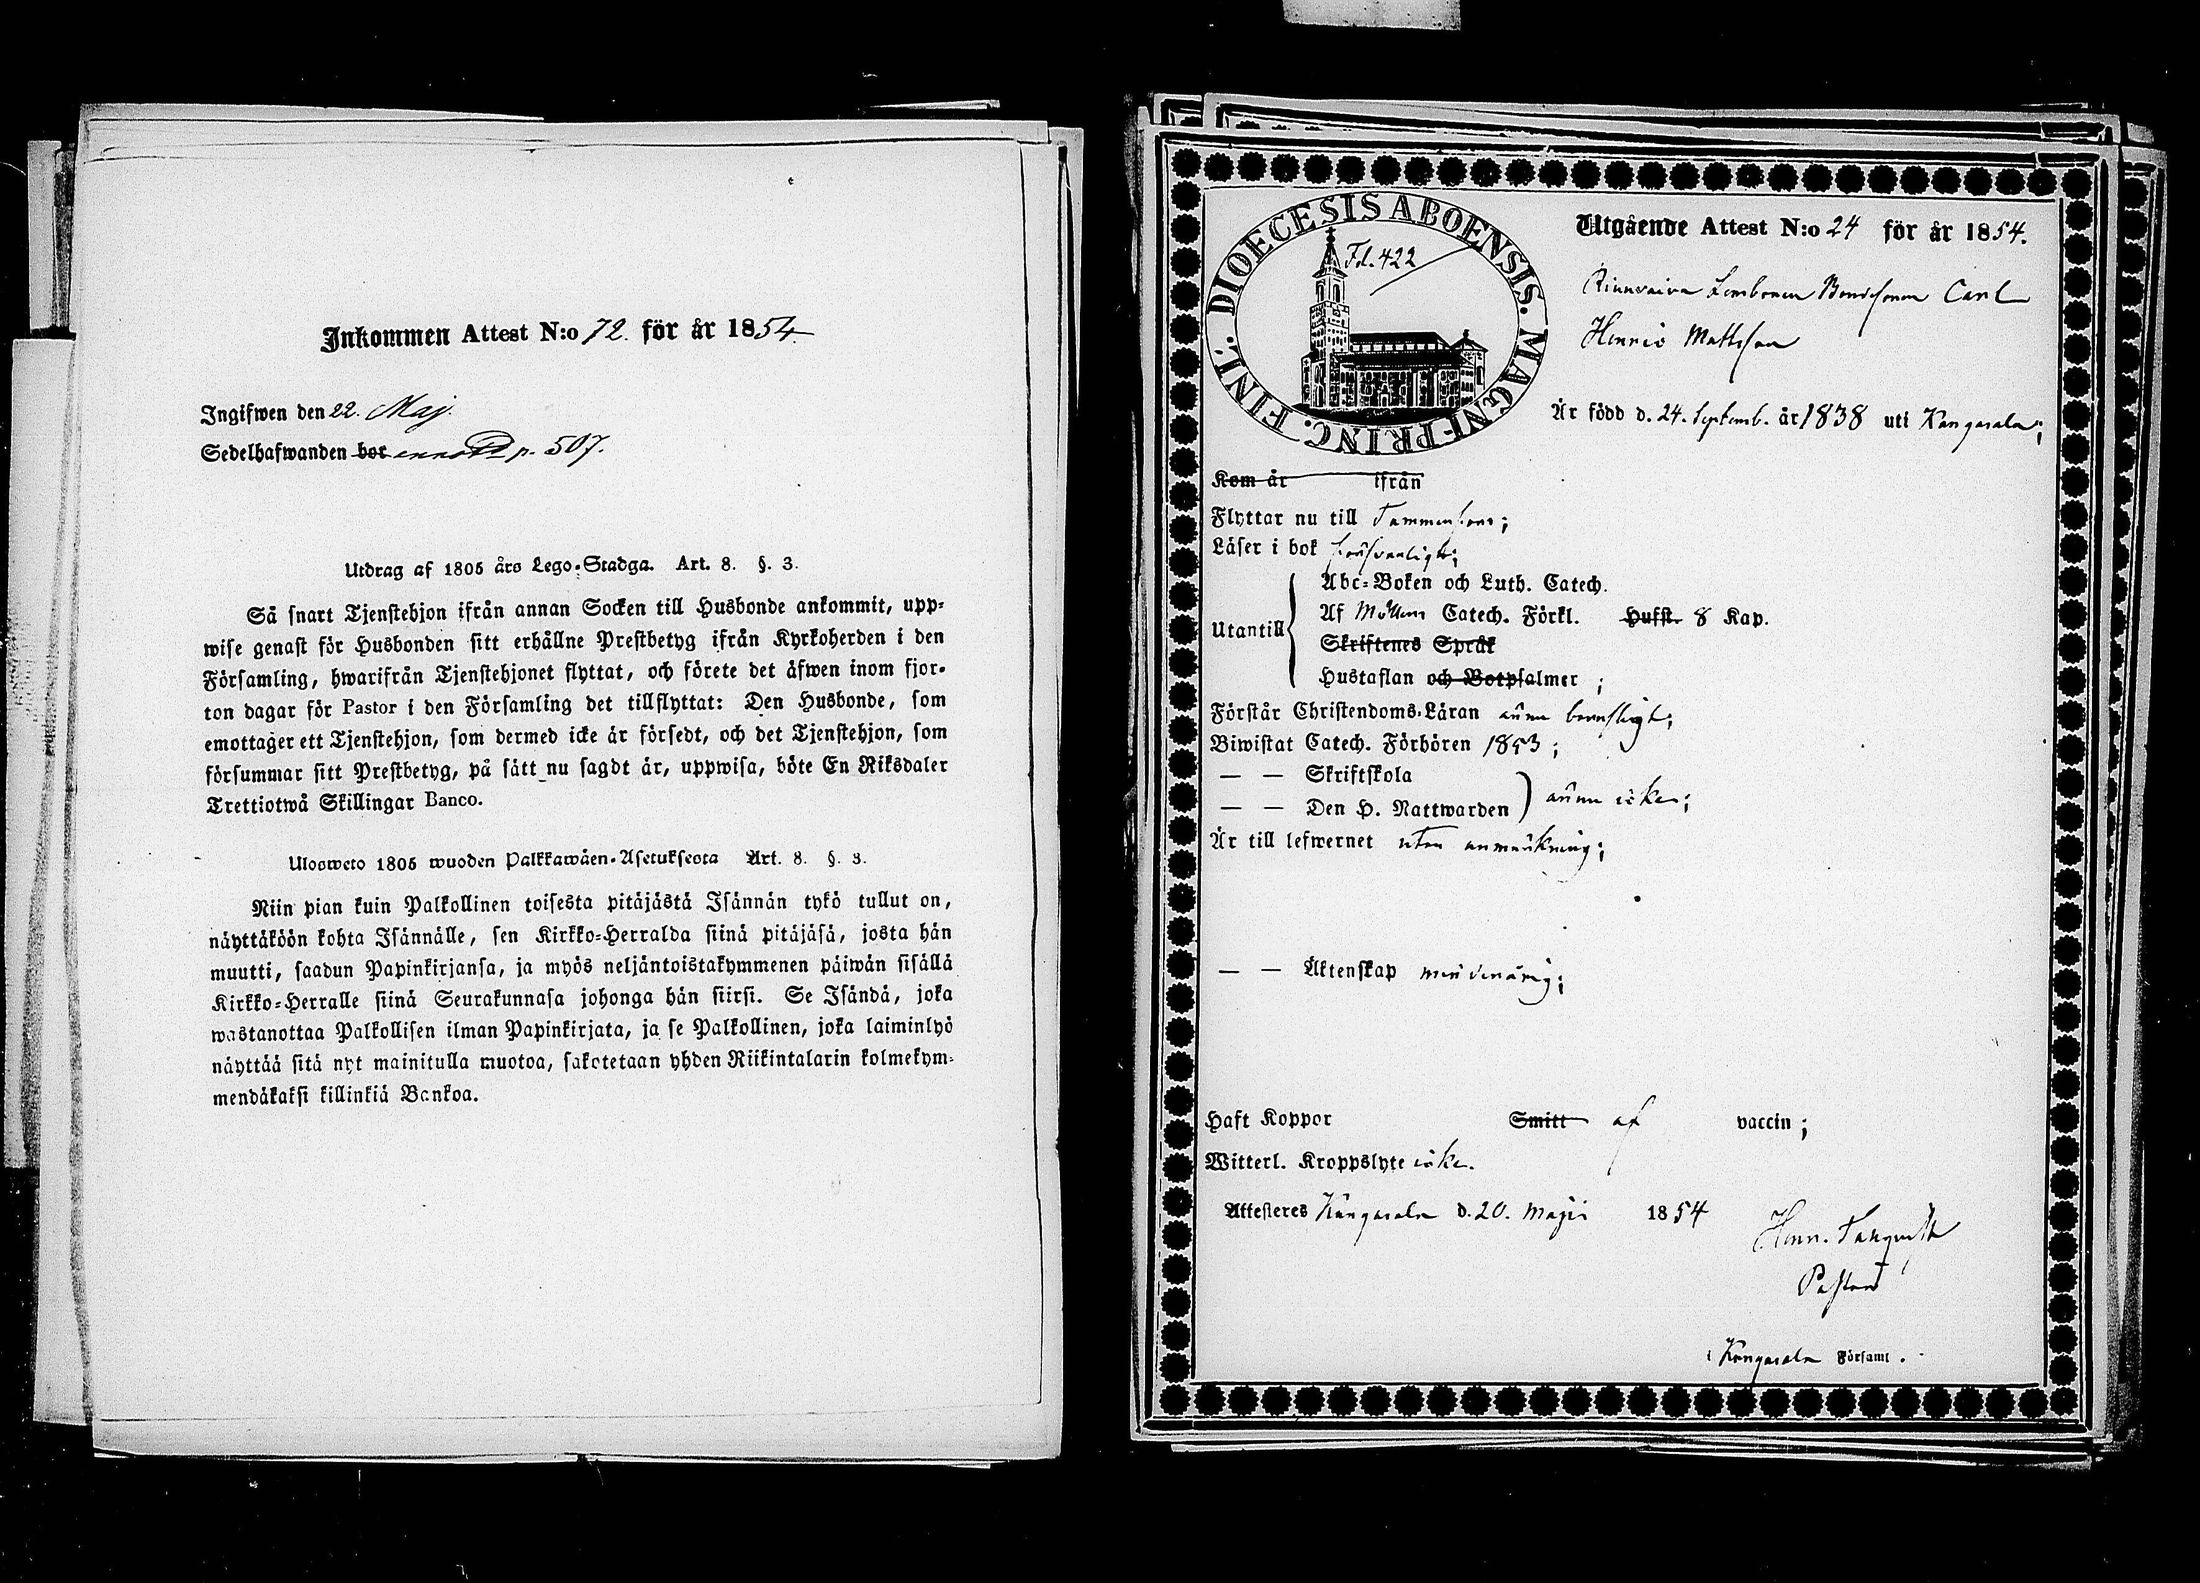 Inkommen Attest N:o 72. för år 1854.
Ingifwen den 22. Maj.
Sedelhafwanden bor p. 507.
Utdrag af 1805 års Lego-Stadga. Art. 8. §. 3.
Så snart Tjenstehjon ifrån annan Socken till Husbonde ankommit, upp-
wise genast för Husbonden sitt erhållne Prestbetyg ifrån Kyrkoherden i den
Församling, hwarifrån Tjenstehjonet flyttat, och förete det äfwen inom fjor-
ton dagar för Pastor i den Församling det tillflyttat: Den Husbonde, som
emottager ett Tjenstehjon, som dermed icke är försedt, och det Tjenstehjon, som
försummar sitt Prestbetyg, på sätt nu sagdt är, uppwisa, böte En Riksdaler
Trettiotwå Skillingar Banco.
Ulosweto 1805 wuoden Palkkawäen-Asetuksesta Art. 8. §. 3.
Niin pian kuin Palkollinen toisesta pitäjästä Isännän tykö tullut on,
näyttäköön kohta Isännälle, sen Kirkko-Herralda siinä pitäjäsä, josta hän
muutti, saadun Papinkirjansa, ja myös neljäntoistakymmenen päiwän sisällä
Kirkko-Herralle siinä Seurakunnasa johonga hän siirsi. Se Isändä, joka
wastanottaa Palkollisen ilman Papinkirjata, ja se Palkollinen, joka laiminlyö
näyttää sitä nyt mainitulla muotoa, sakotetaan yhden Riikintalarin kolmekym-
mendäkaksi killinkiä Bankoa.
DIOECESIS ABOENSIS. MAGNI-PRINC. FINL.
Fol. 422
Utgående Attest N:o 24 för år 1854.
Bondsonen Carl
Henric Mattsson
Är född d. 24. Septemb. år 1838 uti Kangasala;
Kom år ifrån
Flyttar nu till Tammerfors;
Läser i bok försvarligt;
Utantill
Abc-Boken och Luth. Catech.
Af Möllers Catech. Förkl. Hufst. 8 Kap.
Skriftenes Språk
Hustaflan och Botpsalmer ;
Förstår Christendoms-Läran ännu
Biwistat Catech. Förhören 1853 ;
— — Skriftskola
— — Den H. Nattwarden ännu icke;
Är till lefwernet utan anmärkning;
— — Äktenskap minderårig;
Haft Koppor Smitt af vaccin ;
Witterl. Kroppslyte icke.
Attesteres Kangasala d. 20. Maji 1854
Henr.
Pastor
i Kangasala Församl .